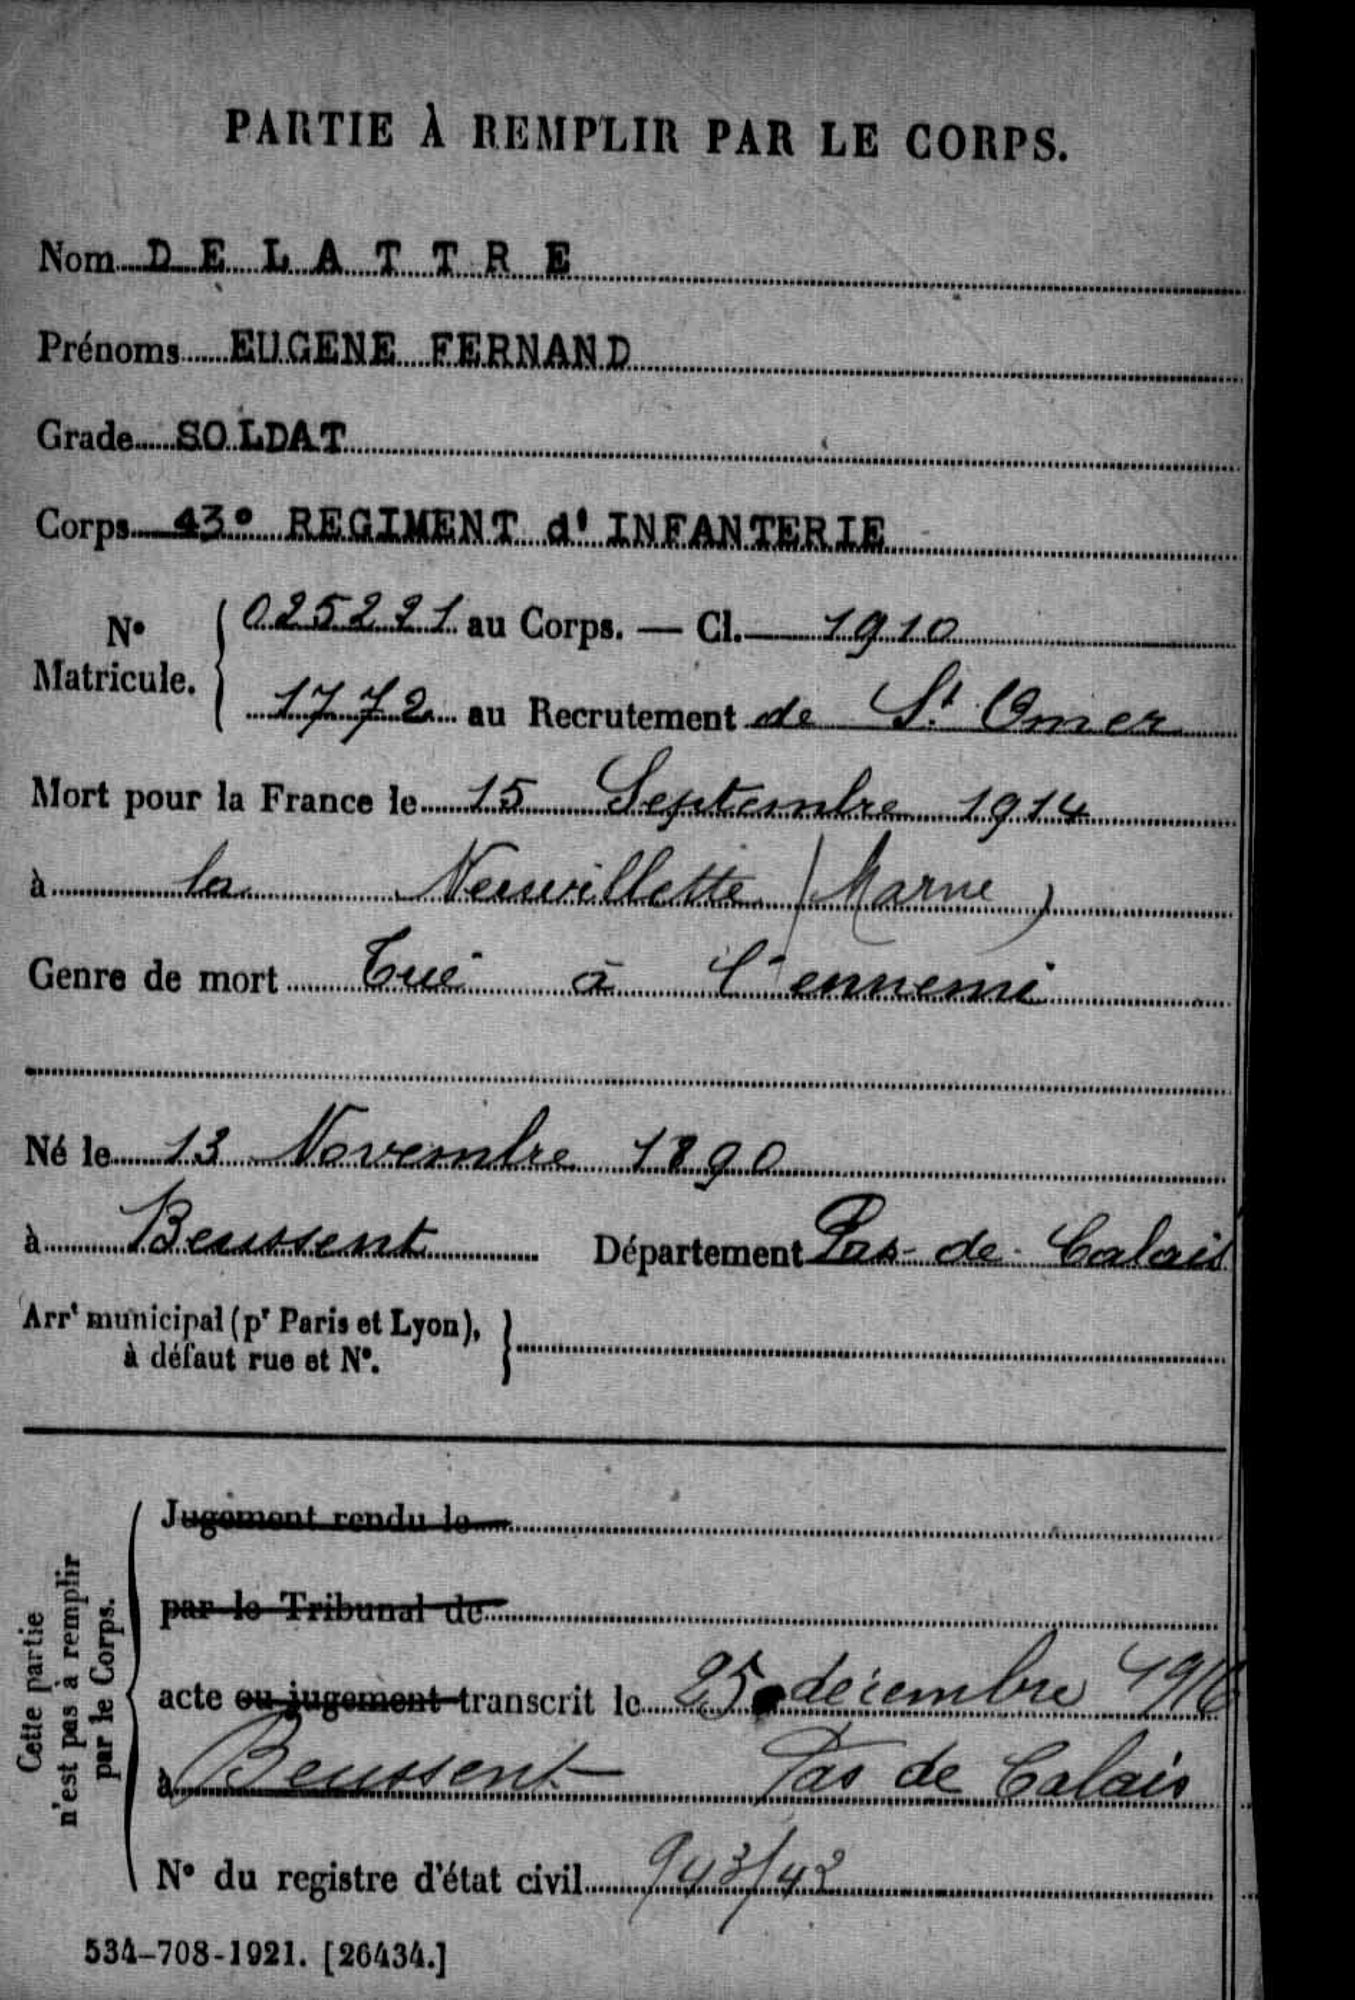 PARTIE À REMPLIR PAR LE CORPS.
Nom DELATTRE
Prénoms EUGENE FERNAND
Grade SOLDAT
Corps 43° REGIMENT d' INFANTERIE
N° Matricule. { 025221 au Corps. — Cl. 1910
1772 au Recrutement de St Omer
Mort pour la France le 15 Septembre 1914
à la Neuvillette (Marne)
Genre de mort Tué à l'ennemi
Né le 13 Novembre 1890
à Beussent Département Pas-de-Calais
Arrt municipal (pr Paris et Lyon), }
à défaut rue et N°.
Cette partie
n'est pas à remplir
par le Corps.
Jugement rendu le
par le Tribunal de
acte ou jugement transcrit le 25 décembre 1916
à Beussent Pas de Calais
N° du registre d'état civil 943/42
534-708-1921. [26434.]